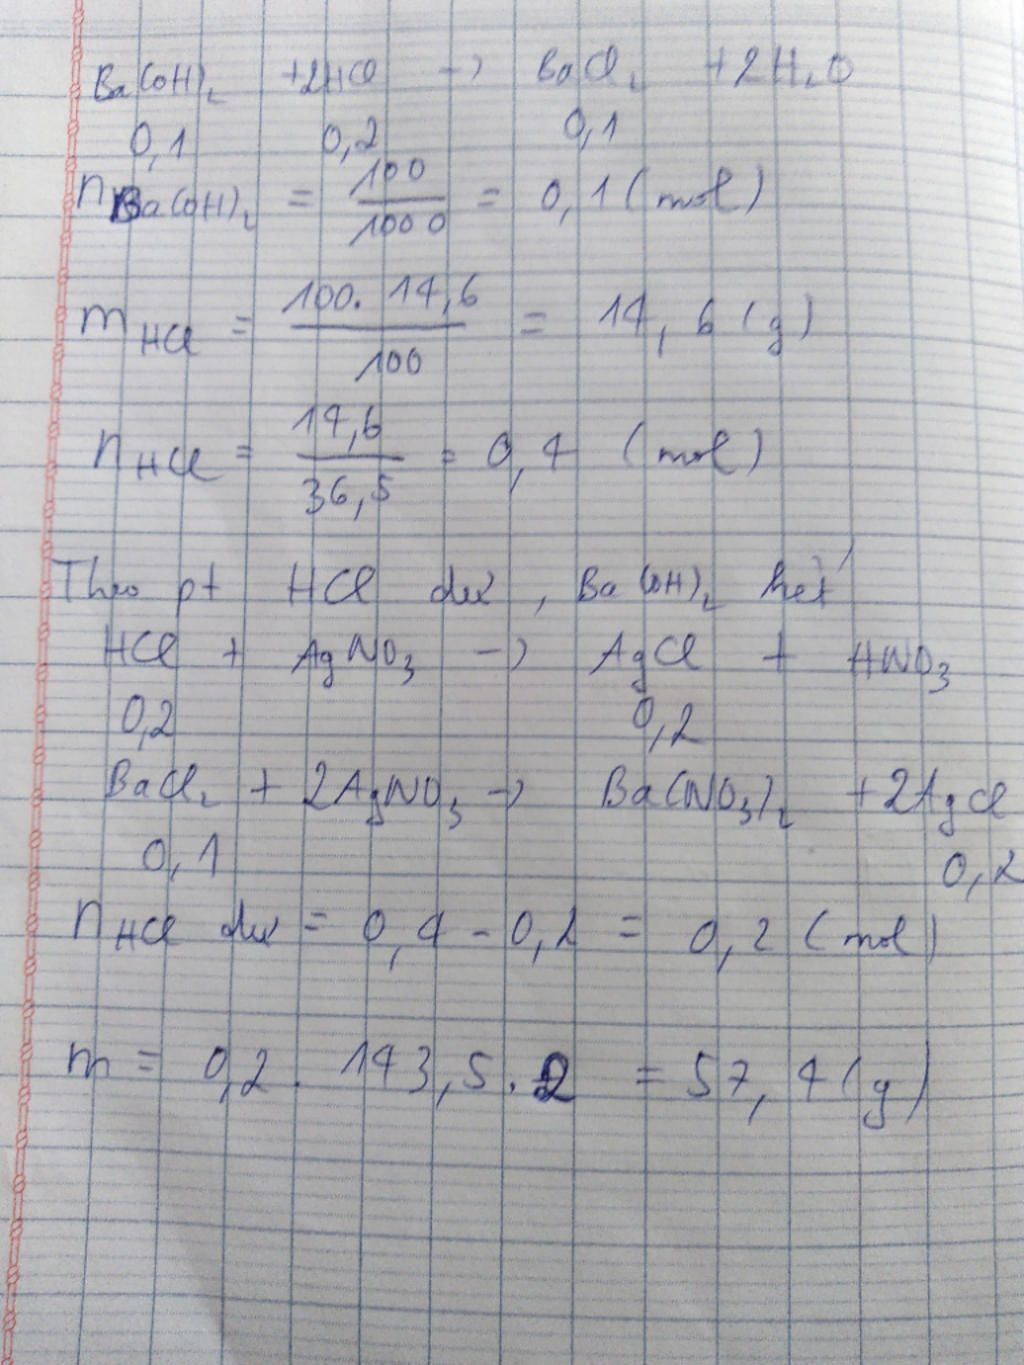 Ba(OH)₂ + 2HCl → BaCl₂ + 2H₂O
0,1 0,2 0,1
nBa(OH)₂ = 100/1000 = 0,1 (mol)
mHCl = 100. 14,6/100 = 14,6 (g)
nHCl = 14,6/36,5 = 0,4 (mol)
Theo pt HCl dư, Ba(OH)₂ hết
HCl + AgNO₃ → AgCl + HNO₃
0,2 0,2
BaCl₂ + 2AgNO₃ → Ba(NO₃)₂ + 2AgCl
0,1 0,2
nHCl dư = 0,4 - 0,2 = 0,2 (mol)
m = 0,2 . 143,5 . 2 = 57,4 (g)